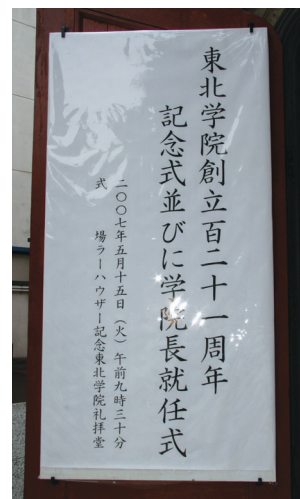 東北学院創立百二十一周年
記念式並びに学院長就任式
二〇〇七年五月十五日（火）午前九時三十分
式　場ラーハウザー記念東北学院礼拝堂